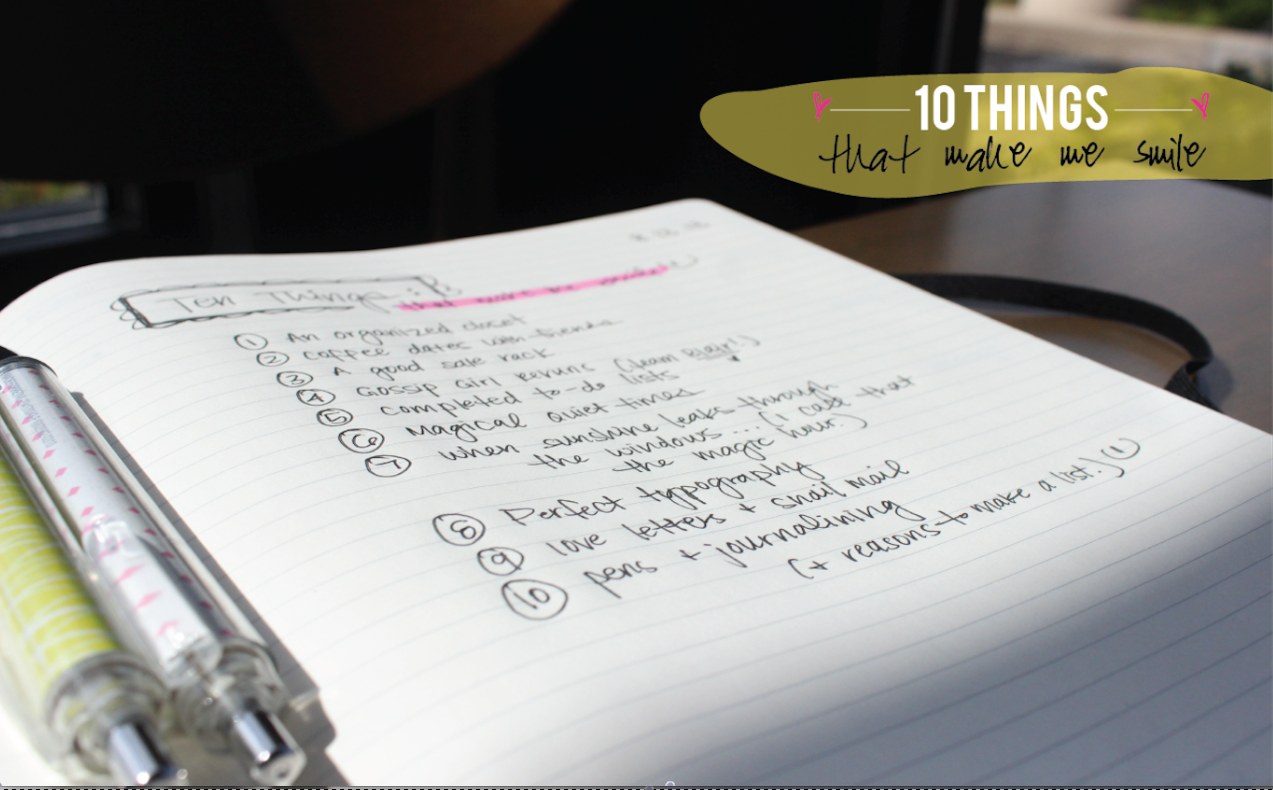 10 THINGS
that make me smile
Ten Things:
that make me
① An organized closet
② coffee dates with friends
③ A good sale rack
④ Gossip Girl reruns (team Blair!)
⑤ completed to-do lists
⑥ Magical quiet times
⑦ when sunshine leaks through
the windows... (I call that
the magic hour.)
⑧ Perfect typography
⑨ love letters + snail mail
⑩ pens + journalining
(+ reasons to make a list.) (!)